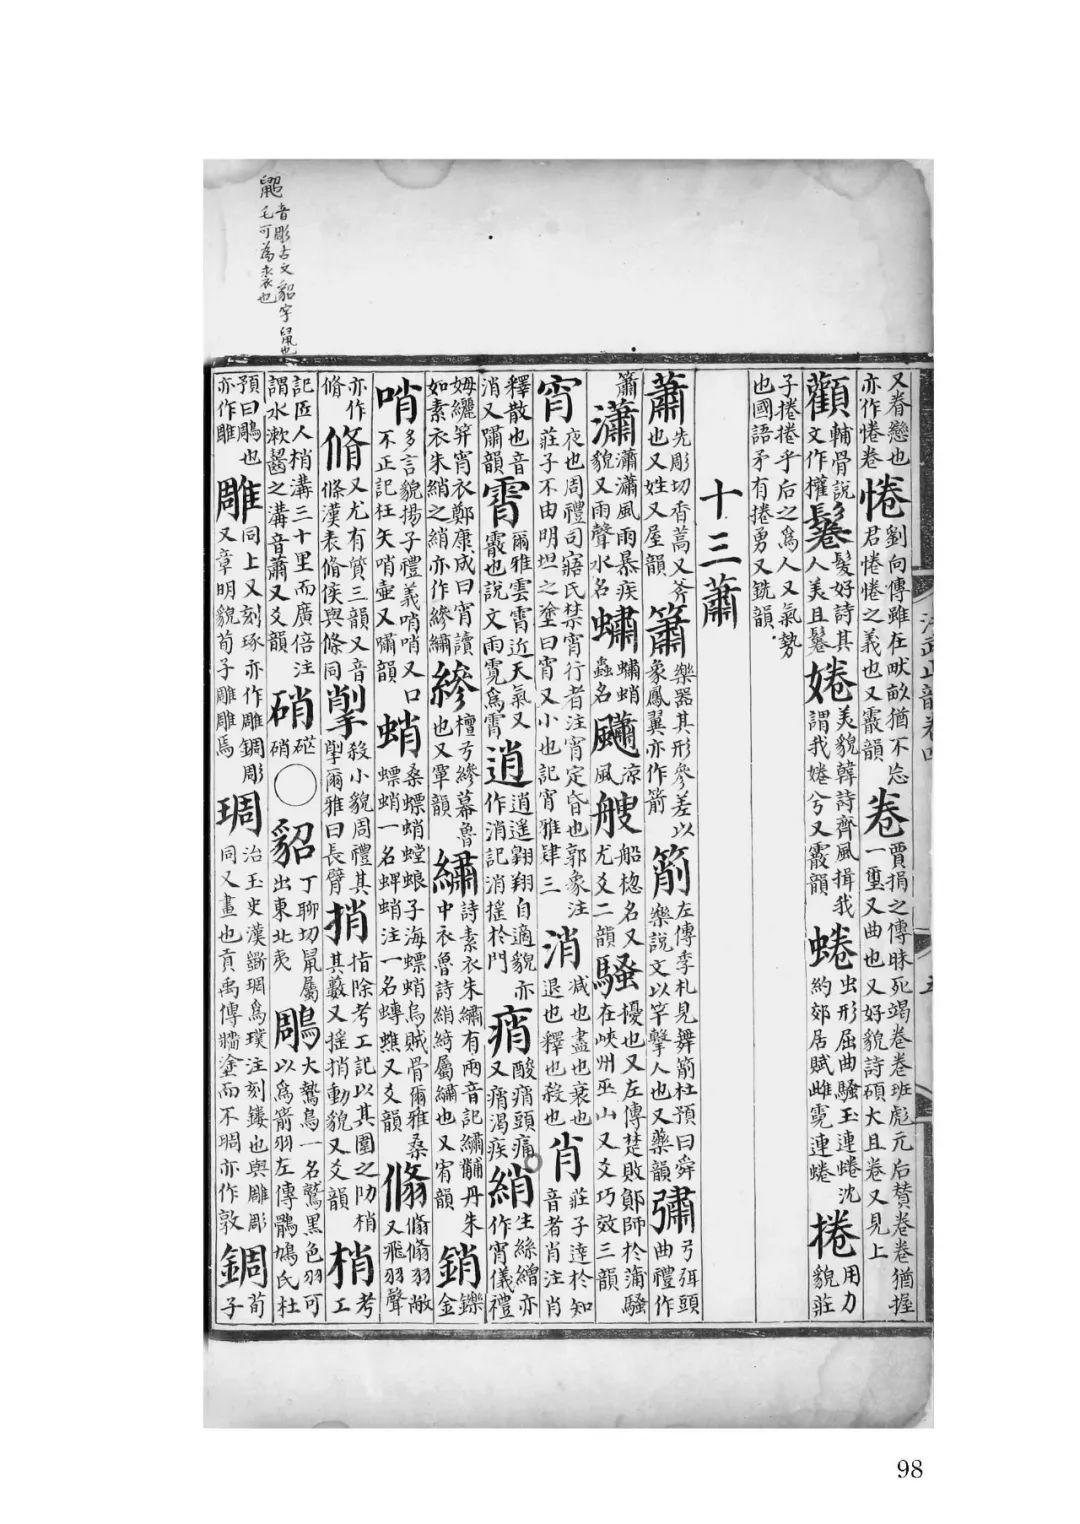 又眷戀也亦作惓卷惓劉向傳雖在畎畝猶不忘君惓惓之義也又霰韻卷賈捐之傳昧死竭卷卷班彪元后贊卷卷猶握一璽又曲也又好貌詩碩大且卷又見上
顴面輔骨說文作權鬈髮好詩其人美且鬈婘美貌韓詩齊風揖我謂我婘兮又霰韻蜷虫形屈曲騷玉連蜷沈約郊居賦雌霓連蜷捲用力貌莊
子捲捲乎后之爲人又氣勢也國語矛有捲勇又銑韻
十三蕭
蕭先彫切香蒿又斧也又姓又屋韻簫樂器其形參差以象鳳翼亦作箾箾左傳季札見舞箾杜預曰舜樂說文以竿擊人也又藥韻彇弓弭頭曲禮作
簫瀟瀟瀟風雨暴疾貌又雨聲水名蠨蠨蛸蟲名涼風艘船總名又尤爻二韻騷擾也又左傳楚敗鄖師於蒲騷在峽州巫山又爻巧效三韻
宵夜也周禮司寤氏禁宵行者注宵定昏也郭象注莊子不由明坦之塗曰宵又小也記宵雅肄三消減也盡也衰也退也釋也殺也肖莊子達於知音者肖注肖
釋散也音消又嘯韻霄爾雅雲霄近天氣又霰也說文雨霓爲霄逍逍遥翱翔自適貌亦作消記消搖於門痟酸痟頭痛又痟渴疾綃生絲繒亦作宵儀禮
姆纚笄宵衣鄭康成曰宵讀如素衣朱綃之綃亦作縿繡縿檀弓縿幕魯也又覃韻繡詩素衣朱繡有兩音記繡黼丹朱中衣魯詩綃綺屬繡也又宥韻銷鑠金
哨多言貌揚子禮義哨哨又口不正記枉矢哨壺又嘯韻蛸桑螵蛸螳蜋子海螵蛸烏賊骨爾雅桑螵蛸一名蜱蛸注一名蟳蟭又爻韻翛翛翛羽敝又飛羽聲
亦作脩翛又尤有質三韻又音條漢表脩侯與條同揱殺小貌周禮其揱爾雅曰長臂捎指除考工記以其圍之阞捎其藪又搖捎動貌又爻韻梢考工
記匠人梢溝三十里而廣倍注謂水漱齧之溝音蕭又爻韻硝硭硝○貂丁聊切鼠屬出東北夷鵰大鷙鳥一名鷲黑色羽可以爲箭羽左傳鶻鳩氏杜
預曰鵰也亦作雕雕同上又刻琢亦作雕鋼彫又章明貌荀子雕雕焉琱治玉史漢斲琱爲璞注刻鏤也與雕彫同又畫也貢禹傳牆塗而不琱亦作敦錭荀子
鼦音彫古文貂字鼠也
毛可爲裘也
98